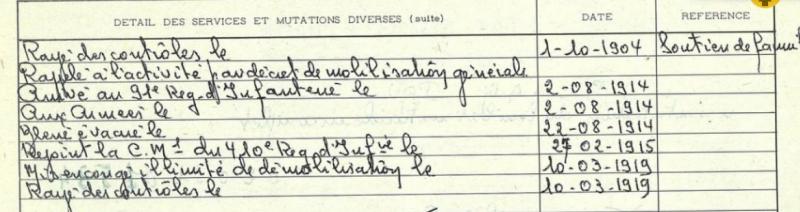 DETAIL DES SERVICES ET MUTATIONS DIVERSES (suite) DATE REFERENCE
Rayé des contrôles le 1-10-1904 Soutien de famil
Rappelé à l'activité par décret de mobilisation générale
Arrivé au 91e Reg. d'Infanterie le 2-08-1914
Aux Armées le 2-08-1914
Blessé évacué le 22-08-1914
Rejoint la C.M1 du 410e Reg. d'Infie le 27 02-1915
Mis en congé illimité de démobilisation le 10-03-1919
Rayé des contrôles le 10-03-1919